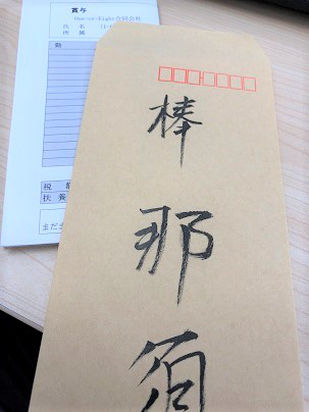 賞与
One-or-Eight合同会社
氏名
所属
勤
税
扶養
まだ
棒那須